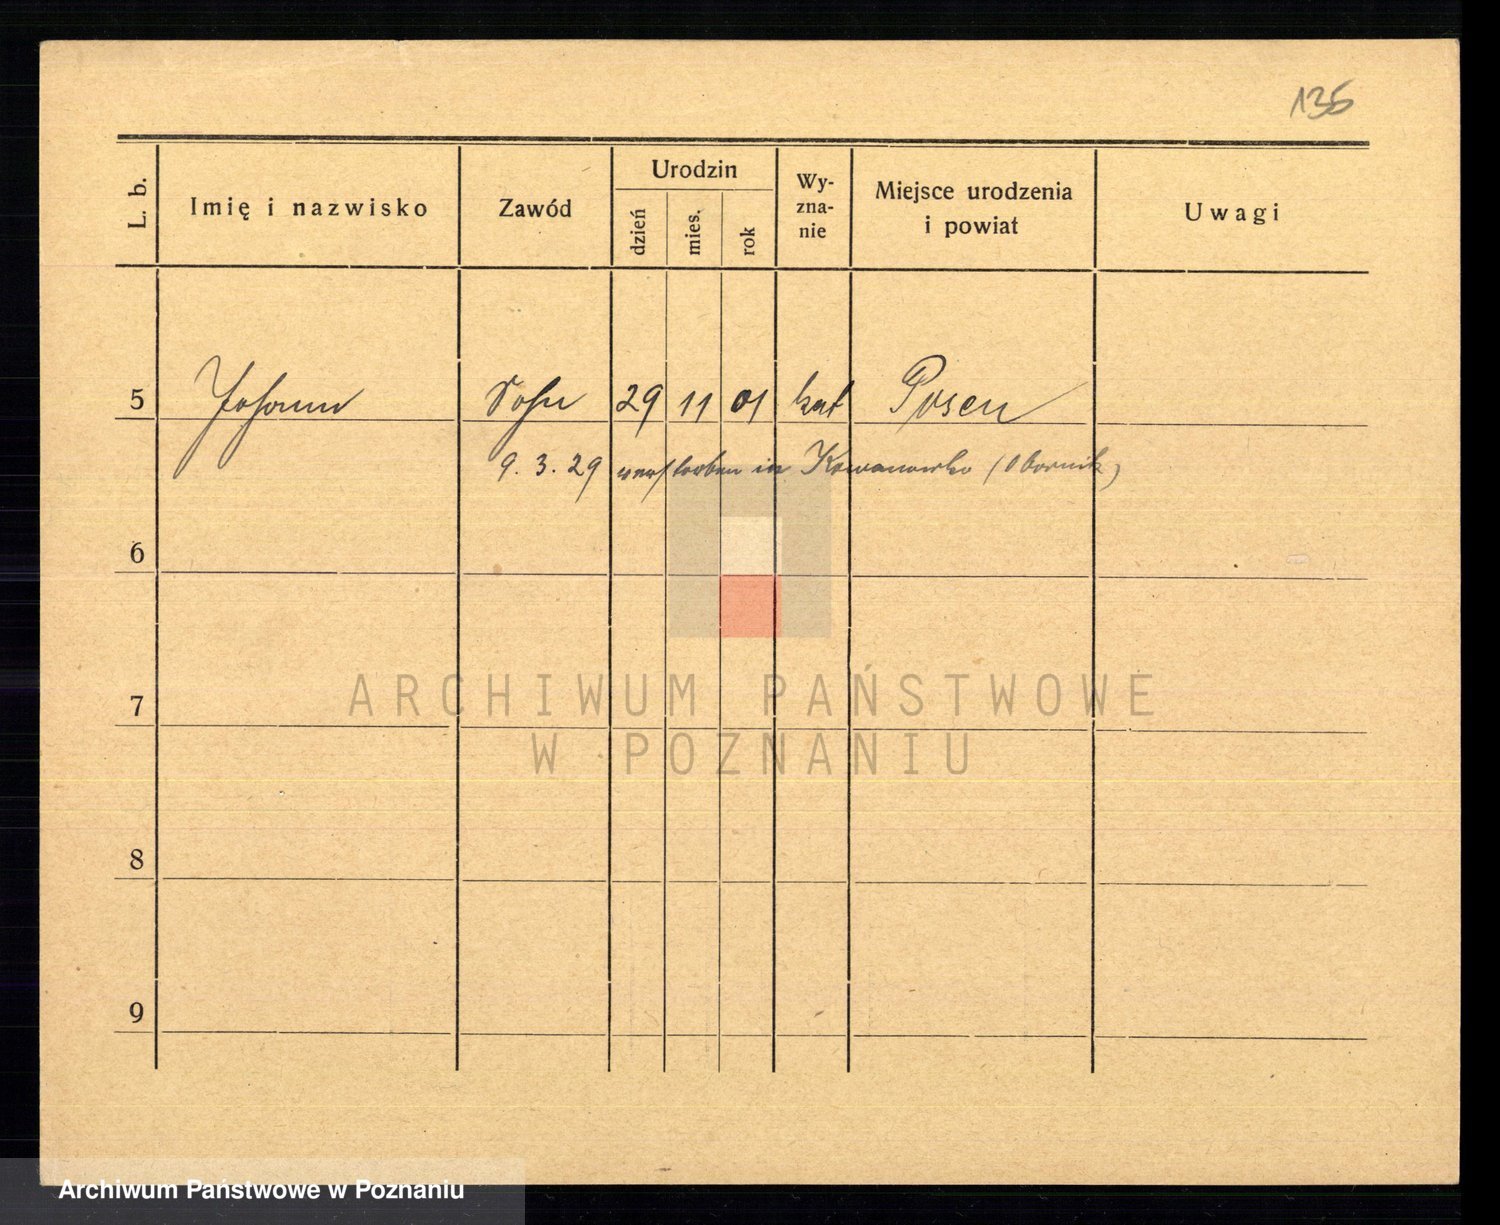 136
L. b.
Imię i nazwisko
Zawód
Urodzin
dzień
mies.
rok
Wy-
zna-
nie
Miejsce urodzenia
i powiat
Uwagi
5 Johann Sohn 29 11 01 kat Posen
9. 3. 29 verstorben in Kowanowko (Obornik)
6
7
8
9
ARCHIWUM PAŃSTWOWE
W POZNANIU
Archiwum Państwowe w Poznaniu